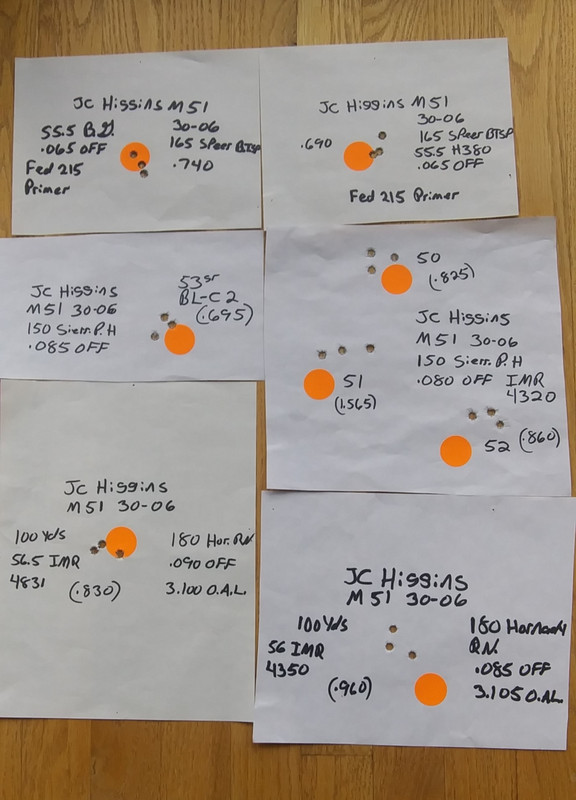 JC Higgins M51
55.5 B.G.
.065 OFF
Fed 215
Primer
30-06
165 Speer BTSP
.740
JC Higgins M51
30-06
165 Speer BTSP
55.5 H380
.065 OFF
.690
Fed 215 Primer
JC Higgins
M51 30-06
150 Sierr. P.H
.085 OFF
53gr
BL-C2
(.695)
50
(.825)
JC Higgins
M51 30-06
150 Sierr. P.H
.080 OFF IMR
4320
51
(1.565)
52 (.860)
JC Higgins
M51 30-06
100 Yds
56.5 IMR
4831
(.830)
180 Hor. RN
.090 OFF
3.100 O.A.L.
JC Higgins
M51 30-06
100 Yds
56 IMR
4350
(.960)
180 Hornady
RN.
.085 OFF
3.105 O.AL.